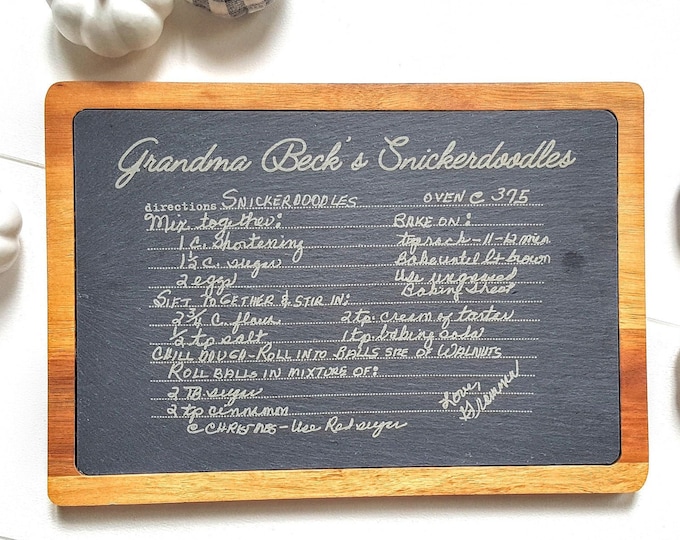 Grandma Beck's Snickerdoodles
directions SNICKERDOODLES OVEN @ 375
Mix together: BAKE ON:
1 c. shortening top rack - 11-12 min
1 1/2 c. sugar Bake until lt brown
2 eggs Use ungreased
Baking Sheet
SIFT TOGETHER & STIR IN:
2 3/4 C. flour 2 tp cream of tarter
1/2 tp salt 1 tp baking soda
CHILL DOUGH - ROLL INTO BALLS SIZE OF WALNUTS
ROLL BALLS IN MIXTURE OF:
2 TB sugar
2 tp cinnamon
@ CHRISTMAS - Use Red sugar
Love,
Grammer